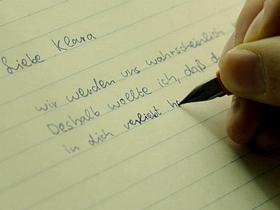 Liebe Klara
wir werden uns wahrscheinlich
Deshalb wollte ich, daß d
in dich verliebt h